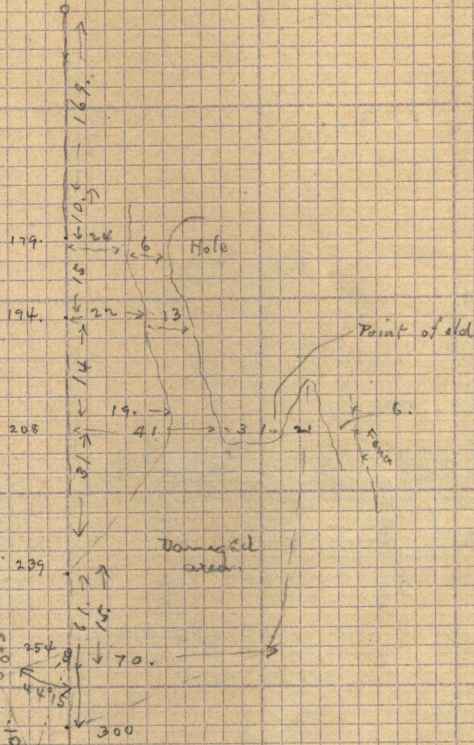 169.
10.
179.
24
6
Hole
15
194.
22
13
Point of old
14
208
19.
41
3
21
6.
Fence
31
Damaged
area.
239
61.
15.
254
70.
44°
15
300